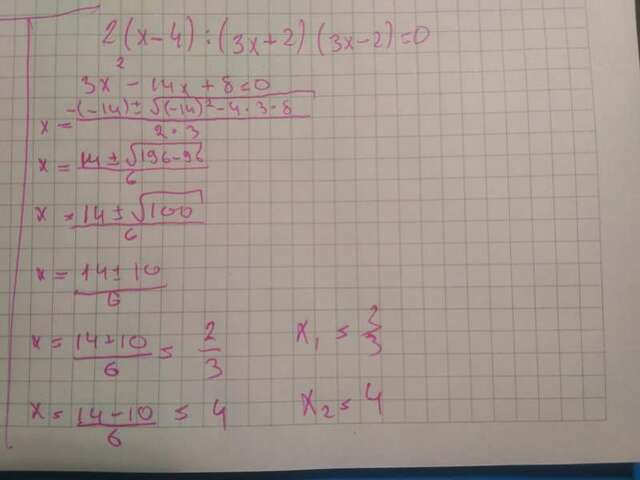 2(x-4):(3x+2)(3x-2)=0
3x²-14x+8=0
x=(-(-14)±√((-14)²-4·3·8))/(2·3)
x=(14±√(196-96))/6
x=(14±√100)/6
x=(14±10)/6
x=(14±10)/6=2/3 x₁=2/3
x=(14-10)/6=4 x₂=4